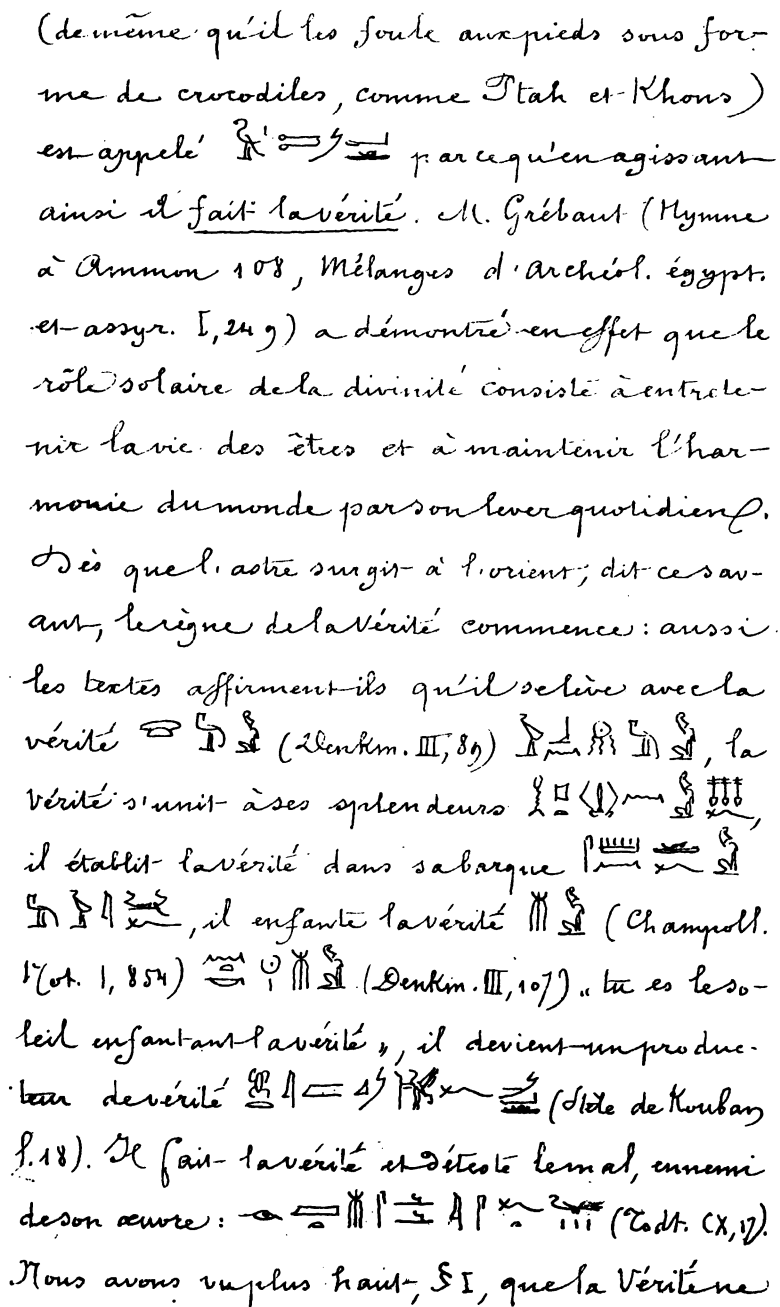 (de même qu'il les foule aux pieds sous for-
me de crocodiles, comme Ptah et Khons)
est appelé parce qu'en agissant
ainsi il fait la vérité. M. Grébaut (Hymne
à Ammon 108, Mélanges d'Archéol. égypt.
et assyr. I, 249) a démontré en effet que le
rôle solaire de la divinité consiste à entrete-
nir la vie des êtres et à maintenir l'har-
monie du monde par son lever quotidien.
Dès que l'astre surgit à l'orient, dit ce sav-
ant, le règne de la Vérité commence : aussi
les textes affirment-ils qu'il se lève avec la
vérité (Denkm. III, 89) , la
vérité s'unit à ses splendeurs ,
il établit la vérité dans sa barque
, il enfante la vérité (Champoll.
Not. I, 854) (Denkm. III, 107) „ tu es le so-
leil enfantant la vérité „, il devient un produc-
teur de vérité (Stèle de Kouban
l. 18). Il fait la vérité et déteste le mal, ennemi
de son œuvre : (Todt. CX, 17).
Nous avons vu plus haut, § I, que la Vérité ne